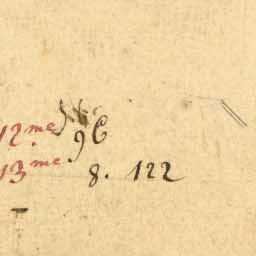 12me 9C
13me 8. 122